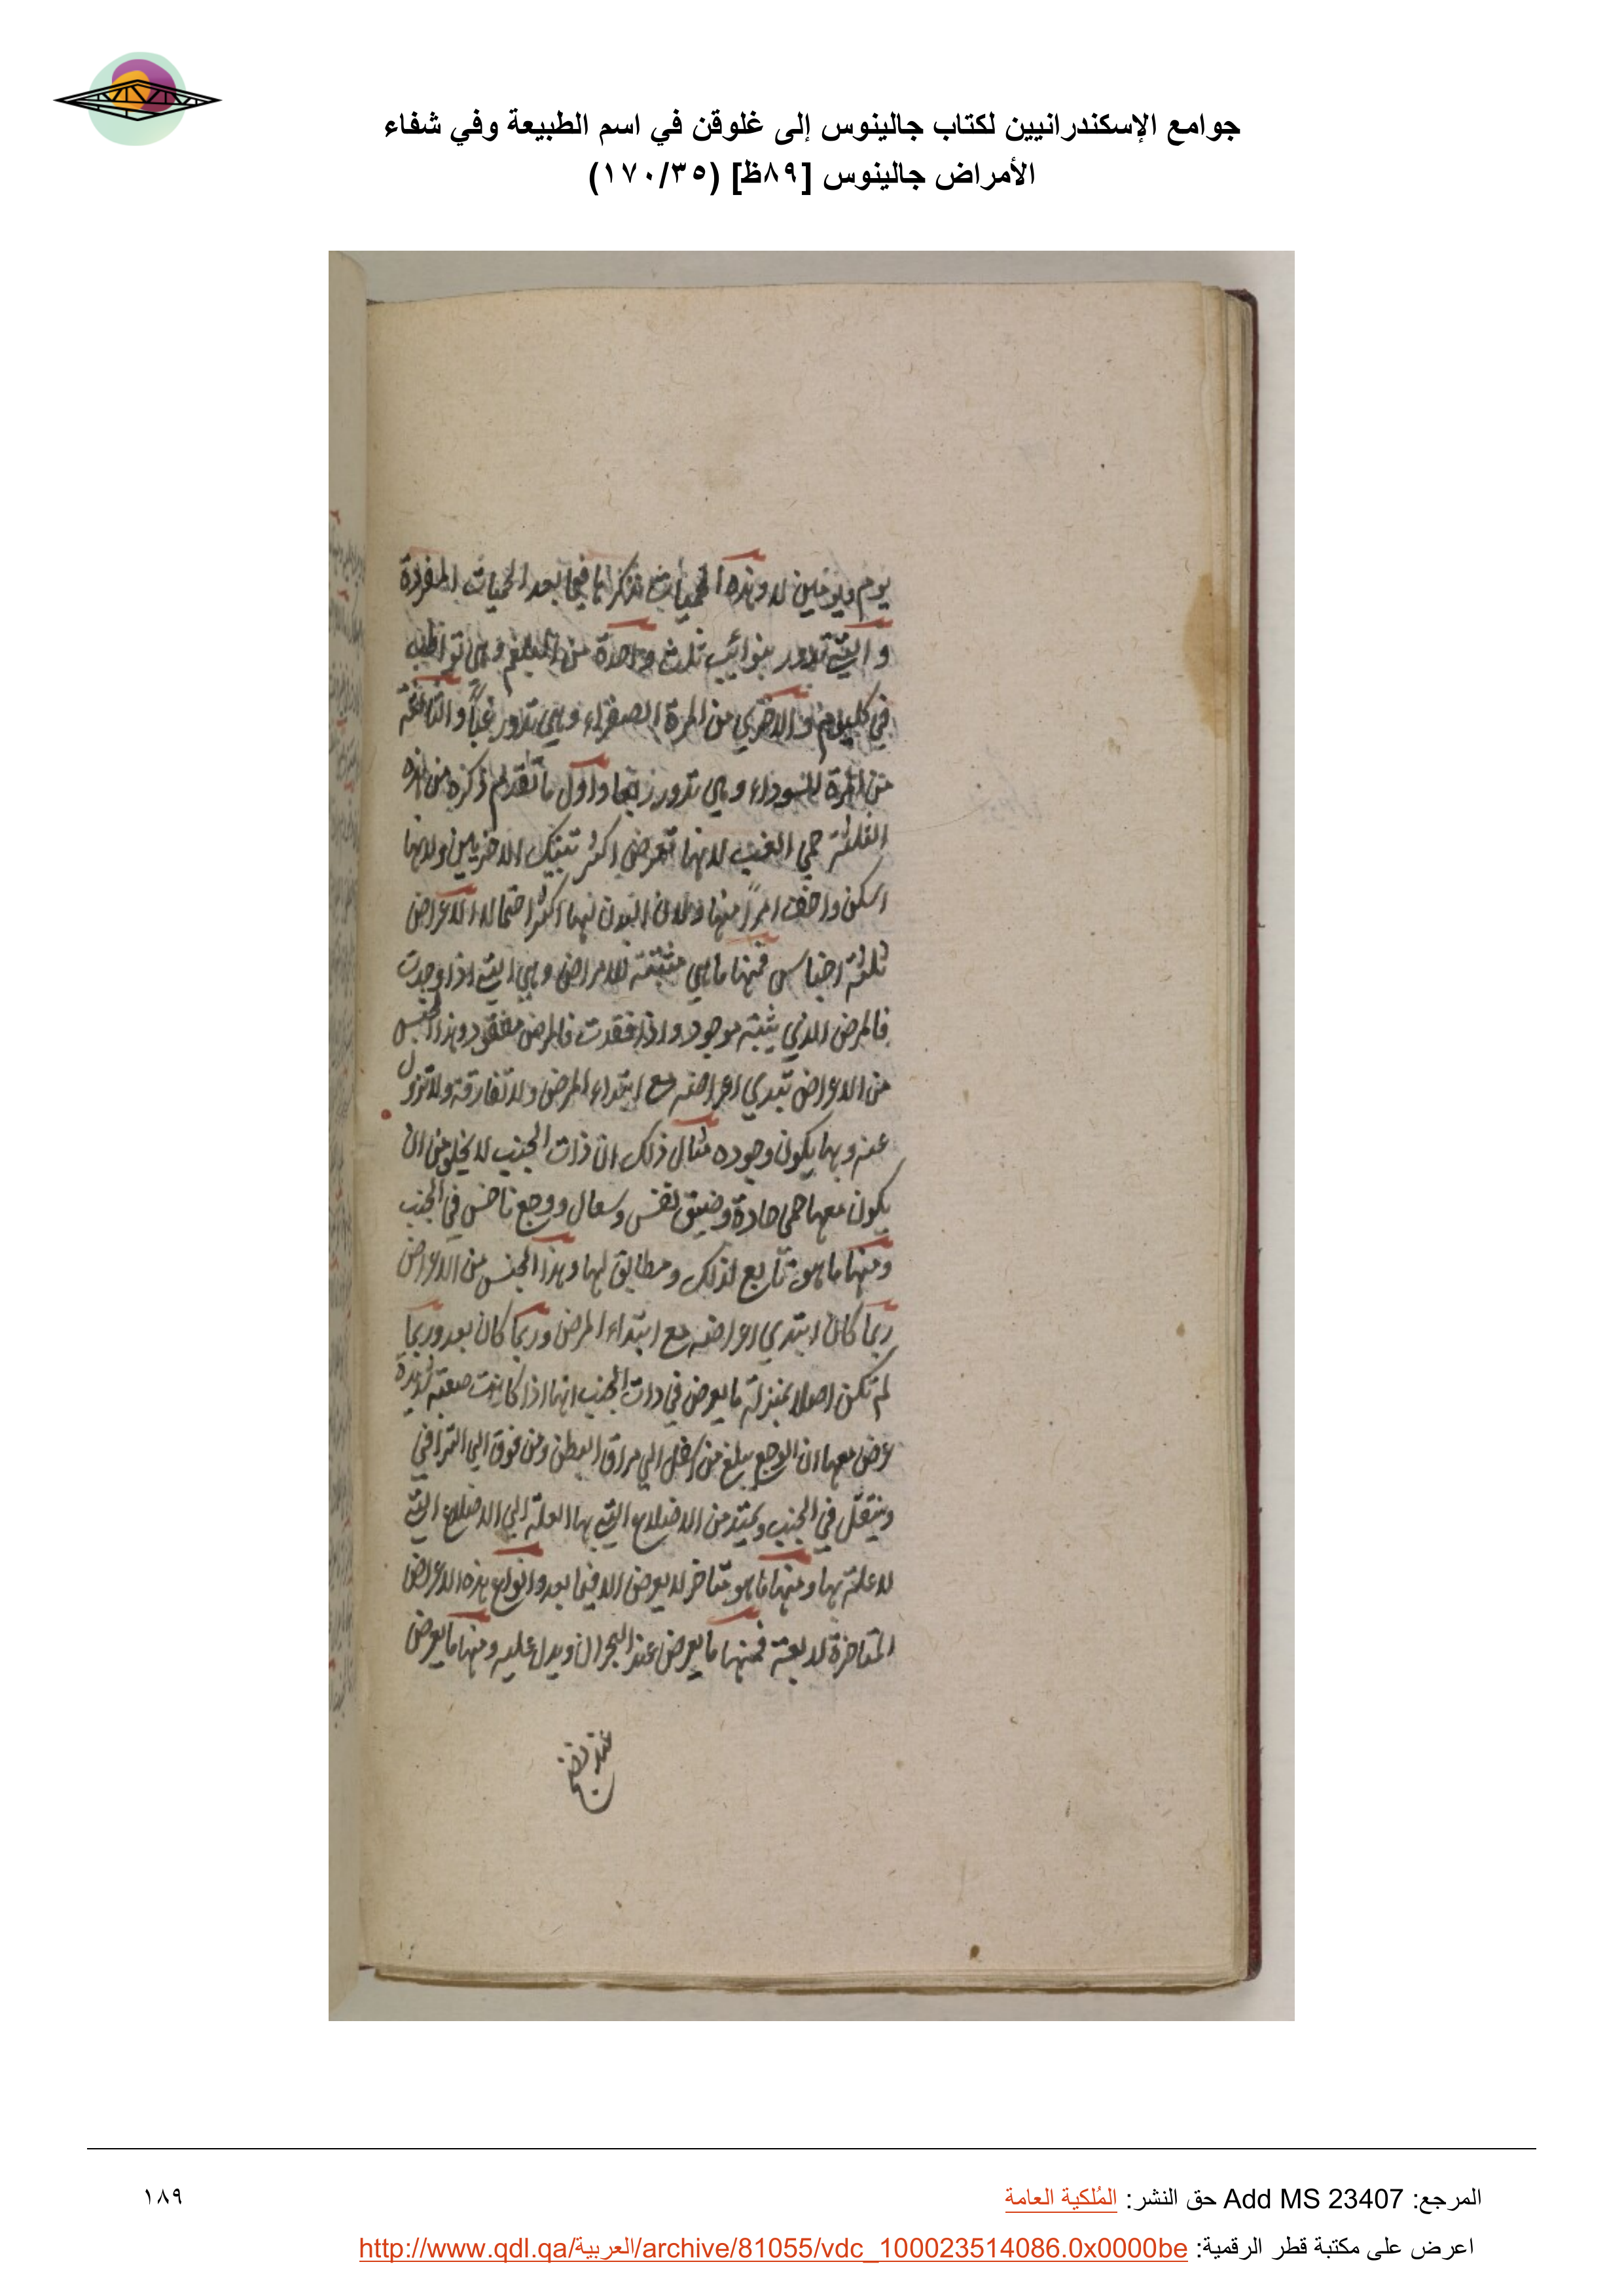 جوامع الإسكندرانيين لكتاب جالينوس إلى غلوقن في اسم الطبيعة وفي شفاء
الأمراض جالينوس [٨٩ظ] (١٧٠/٣٥)
يوم ويومين لا وهذه الحميات نذكرها فيما بعد الحميات المفردة
والتي تدور بنوائب ثلث واحدة من البلغم وهي تواظب
في كل يوم والاخري من المرة الصفراء وهي تدور غبا والثالثة
من المرة السوداء وهي تدور ربعا واول ما تقدم ذكره من هذه
الثلثة حمي الغب لانها تعرض اكثر تينك الاخريين ولانها
اسكن واخف امرا منها ولان البدن لها اكثر احتمالا الاعراض
ثلثة اجناس فمنها ما هي مثبتة للامراض وهي التي اذا وجدت
فالمرض الذي يثبته موجود واذا فقدت فالمرض مفقود وهذا الجنس
من الاعراض تبدي اعراضه مع ابتداء المرض ولا تفارقه ولا تزول
عنه وبها يكون وجوده مثال ذلك ان ذات الجنب لا يخلو من ان
يكون معها حمي حادة وضيق نفس وسعال ووجع ناخس في الجنب
ومنها ما هو تابع لذلك ومطابق لها وهذا الجنس من الاعراض
ربما كان ابتدي اعراضه مع ابتداء المرض وربما كان بعد وربما
لم تكن اصلا بمنزلة ما يعرض في ذات الجنب انها اذا كانت صعبة شديدة
عرض معها ان الوجع يبلغ من اسفل الي مراق البطن ومن فوق الي التراقي
وينتقل في الجنب ويمتد من الاضلاع التي بها العلة الي الاضلاع التي
لا علة بها ومنها ما هو متاخر لا يعرض الا فيما بعد وانواع هذه الاعراض
المتاخرة لربعة فمنها ما يعرض عند البحران ويدل عليه ومنها ما يعرض
عند نضج
المرجع: Add MS 23407 حق النشر: المُلكية العامة
١٨٩
اعرض على مكتبة قطر الرقمية: http://www.qdl.qa/العربية/archive/81055/vdc_100023514086.0x0000be